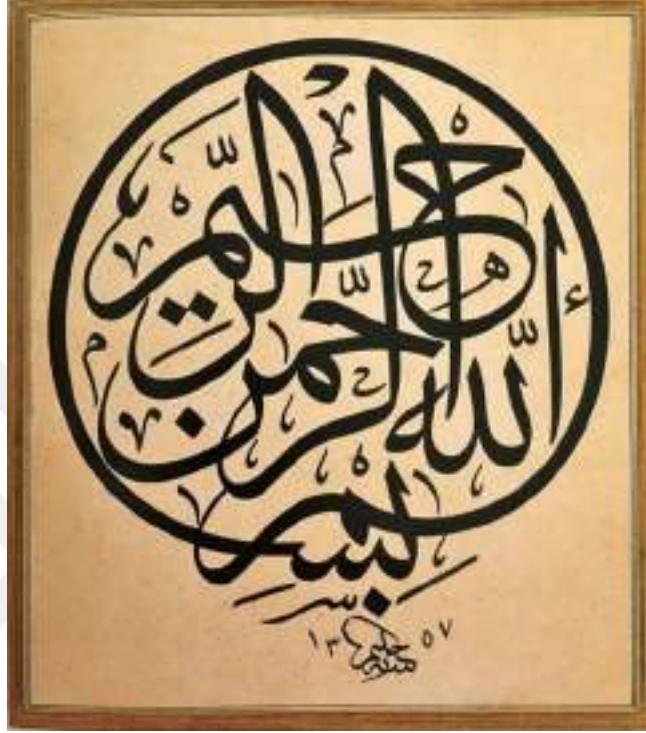 بسم الله الرحمن الرحيم
١٣٥٧